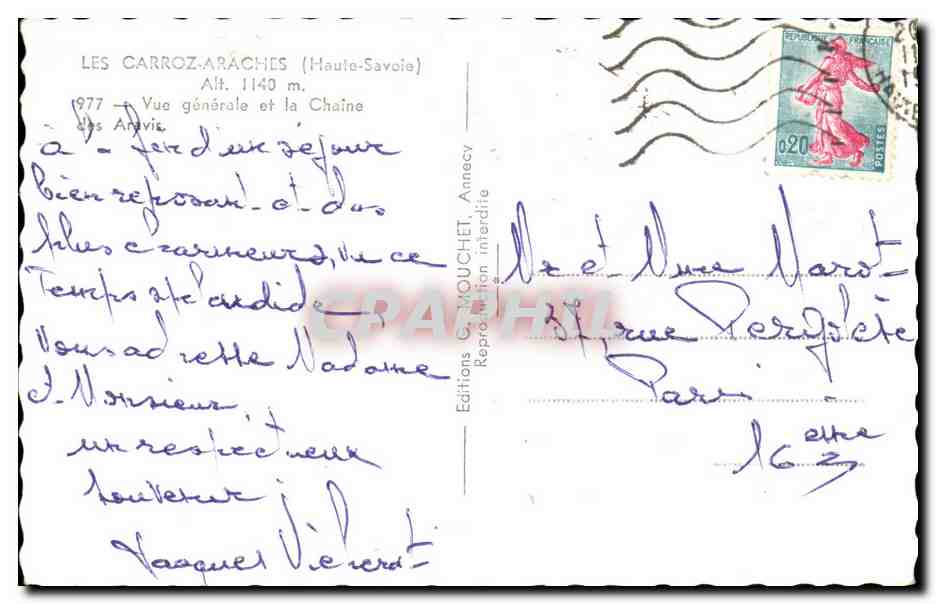 LES CARROZ-ARÂCHES (Haute-Savoie)
Alt. 1140 m.
977 - Vue générale et la Chaîne
des Aravis
séjour
bien reposant et des
plus charmeurs, vu ce
Temps splendide,
vous adresse Madame
et Monsieur,
un respectueux
souvenir
Jacques
Editions C. MOUCHET, Annecy
Reproduction interdite
REPUBLIQUE FRANÇAISE
0,20
POSTES
Mr et Mme Marot
37, rue Pergolèse
Paris
16 eme
CPAPHIL